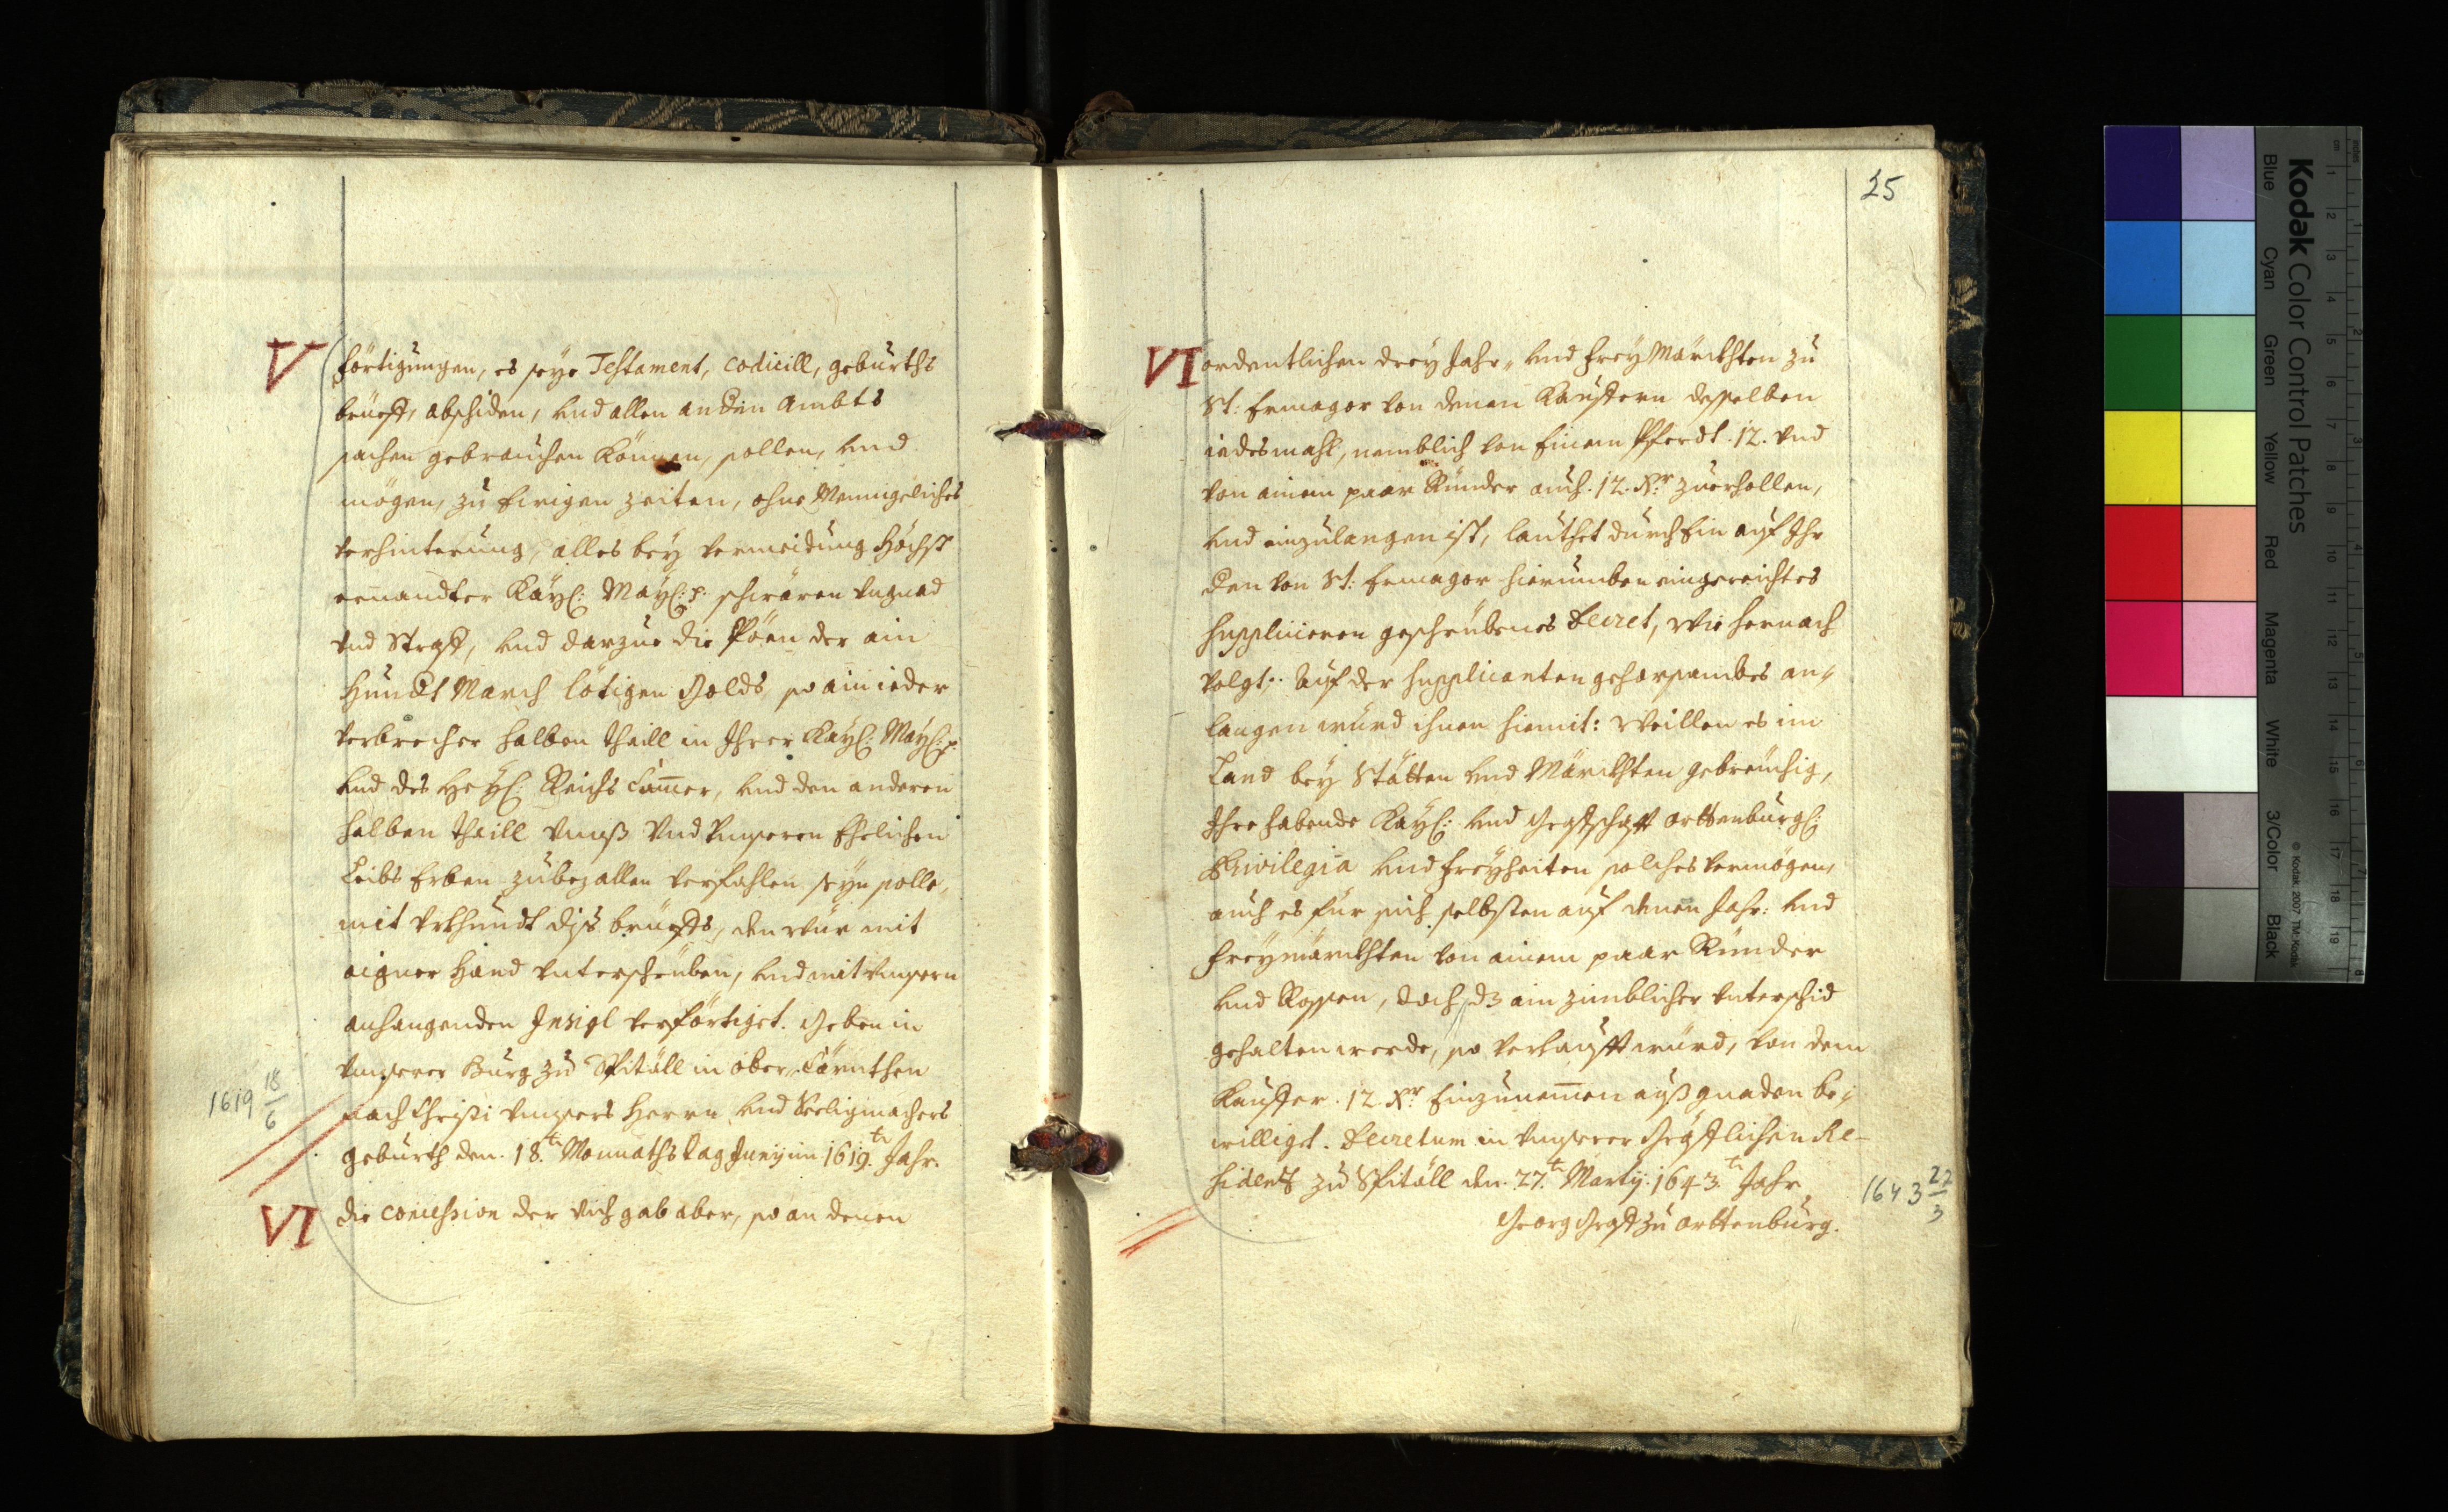 V
förtigungen, es seye Testament, codicill, geburths
brieff, abschiden, und allen andern Ambts
sachen gebrauchen können, sollen, und
mögen, zu Ewigen zeiten, ohne Menniglichs
verhinterung, alles bey vermeidung Höchst
ernandter Kayl: Mayl: p: schwären ungnad
und Straff, und darzue die Pöen der ain
Hundt March lötigen Golds, so ain ieder
verbrecher halben theill in Ihrer Kayl: Mayl: p:
und des Heyl: Reichs Camer, und den anderen
halben theill unnß und unseren Ehelichen
Leibs Erben zubezallen verfahlen seyn solle,
mit urkhundt diß brieffs, den wür mit
aigner Hand unterschrüben, und mit unsern
anhangenden Insigl verförtiget. Geben in
unserer Burg zu Spitäll in ober Cärnthen
nach Christi unsers Herrn und Seeligmachers
geburth den 18.ten Monnaths tag Junij im 1619.ten Jahr.
1619 18/6
VI
die concession der viechgab aber, so an denen
25
VI
ordentlichen drey Jahr, und freyMärckhten zu
St: Ermagor von denen Kauffern desselben
iedesmahl, nemblich von Einem Pferdt 12. und
von ainem paar Rinder auch 12. Xr. zuerhollen,
und einzulangen ist, lauthet durch Ein auf Ihr
den von St: Ermagor hierumben eingereichtes
Suppliciren geschrübenes Decret, wie hernach
volgt: Auf der Supplicanten gehorsambes an-
langen würd ihnen hiemit: weillen es im
Land bey Stätten und Märckhten gebreuchig,
Ihre habende Kayl: und Graffschafft orttenburgl:
Privilegia und freyheiten solches vermögen,
auch es für sich selbsten auf denen Jahr: und
freymärckhten von ainem paar Rinder
und Rossen, doch dz ain zimblicher unterschid
gehalten werde, so verkaufft würd, von dem
Kauffer 12. Xr. Einzunemen auß gnaden be-
williget. Decretum in unserer Gräfflichen Re-
sidenz zu Spitäll den 27.ten Martij 1643.ten Jahr
1643 22/3
Georg Graff zu orttenburg.
Kodak Color Control Patches
© Kodak, 2007 TM: Kodak
Blue
Cyan
Green
Yellow
Red
Magenta
White
3/Color
Black